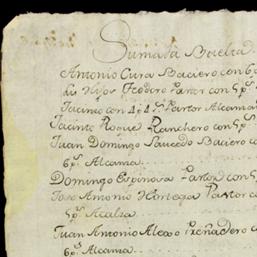 Suma la Buelta
Antonio Cura Baciero con 6 p.s
sus Hijos Teodoro Pastor con 5 p.s
Jacinto con 4 p.s 4 r.s Pastor Alcamai
Jacinto Roque Ranchero con 5 p.s
Juan Domingo Saucedo Baciero co
6 p.s Alcama
Domingo Espinosa Pastor con 5
Jose Antonio Hortega Pastor co
5 p.s Acalsa
Juan Antonio Alexo Preñadero c
6 p.s Alcama